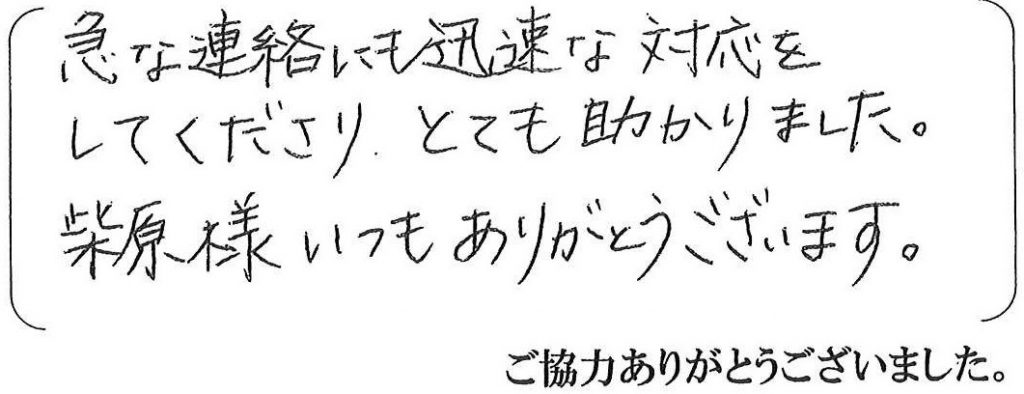 急な連絡にも迅速な対応を
してくださり、とても助かりました。
柴原様いつもありがとうございます。
ご協力ありがとうございました。